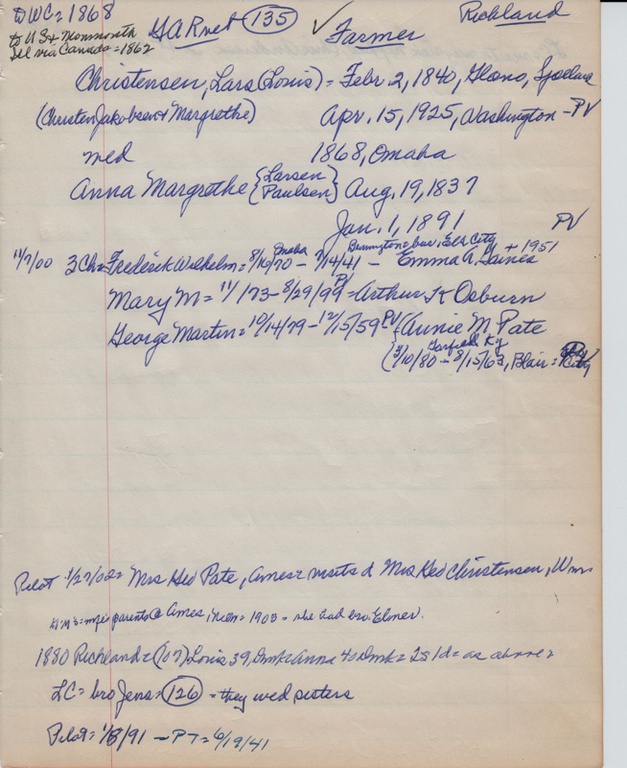 DWC=1868 GARvet (135) ✓ Farmer Richland
to US + Monmouth
Ill via Canada = 1862
Christensen, Lars (Louis) = Febr. 2, 1840, Sjaelland
(Christen Jakobsen + Margrethe) Apr. 15, 1925, Washington - PV
wed 1868, Omaha
Anna Margrethe {Larsen Paulsen} Aug, 19, 1837
Jan. 1, 1891 PV
11/7/00 3 Ch = Frederick Wilhelm = 8/10/70 Omaha - 7/14/41 - Bennington = bur, Elk City Emma A. Gaines + 1951
Mary M = 11/1/73 - 8/29/99 PV = Arthur K Osburn
George Martin = 10/14/79 - 12/15/59 PV {Annie M. Pate
Garfield Ky
(3/10/80 - 8/15/63, Blair = Elk City
Pilot 1/27/02 = Mrs Geo Pate, Ames = visits d Mrs Geo Christensen, Wn
parents @ Ames, = 1903 = she had bro. Elmer.
1880 Richland = (107) Louis 39, Dmk = Anna 40 Dmk = 2s 1d = as above
LC = bro Jens = (126) = they wed sisters
Pilot = 1/8/91 - PT = 6/19/41